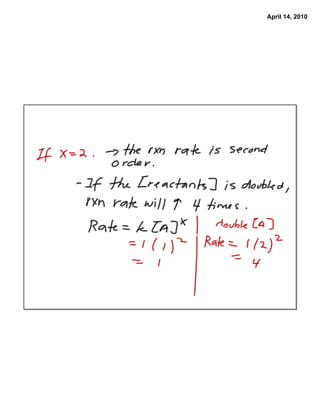 April 14, 2010
If x=2. → the rxn rate is second
order.
- If the [reactants] is doubled,
rxn rate will ↑ 4 times.
Rate = k [A]^x | double [A]
= 1 (1)^2 | Rate = 1(2)^2
= 1 | = 4